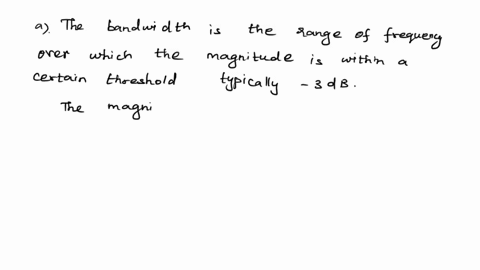 a). The bandwidth is the range of frequery
over which the magnitude is within a
certain threshold typically - 3 dB.
The magni